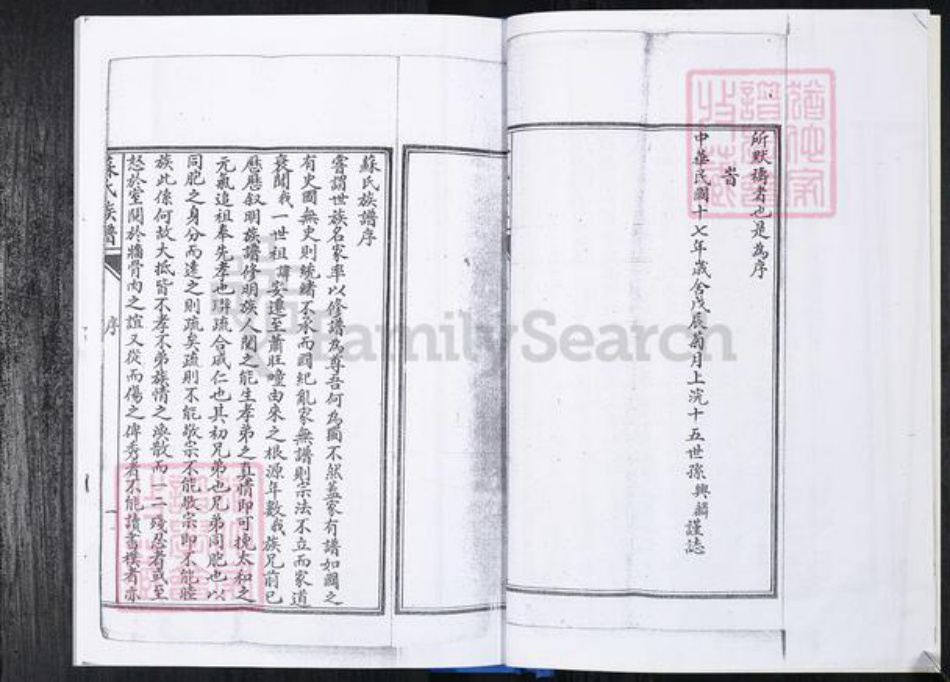 所默禱者也是為序
旹
中華民國十七年歲舍戊辰菊月上浣十五世孫興麟謹誌
蘇氏族譜序
嘗謂世族名家率以修譜為尊吾何為圖不然蓋家有譜如國之
有史國無史則統緒不承而國紀亂家無譜則宗法不立而家道
衰聞我一世祖諱安遷至蕭旺疃由來之根源年數我族兄前已
歷歷叙明族譜修明族人閱之能生孝弟之真情即可挽太和之
元氣追祖奉先孝也聯疏合戚仁也其初兄弟也兄弟同胞也以
同胞之身分而遠之則疏矣疏則不能敬宗不能敬宗即不能睦
族此係何故大抵皆不孝不弟族情之渙散而一二殘忍者或至
怒於室鬩於牆骨肉之誼又從而傷之俾秀者不能讀書樸者亦
蘇氏族譜
序
一
FamilySearch